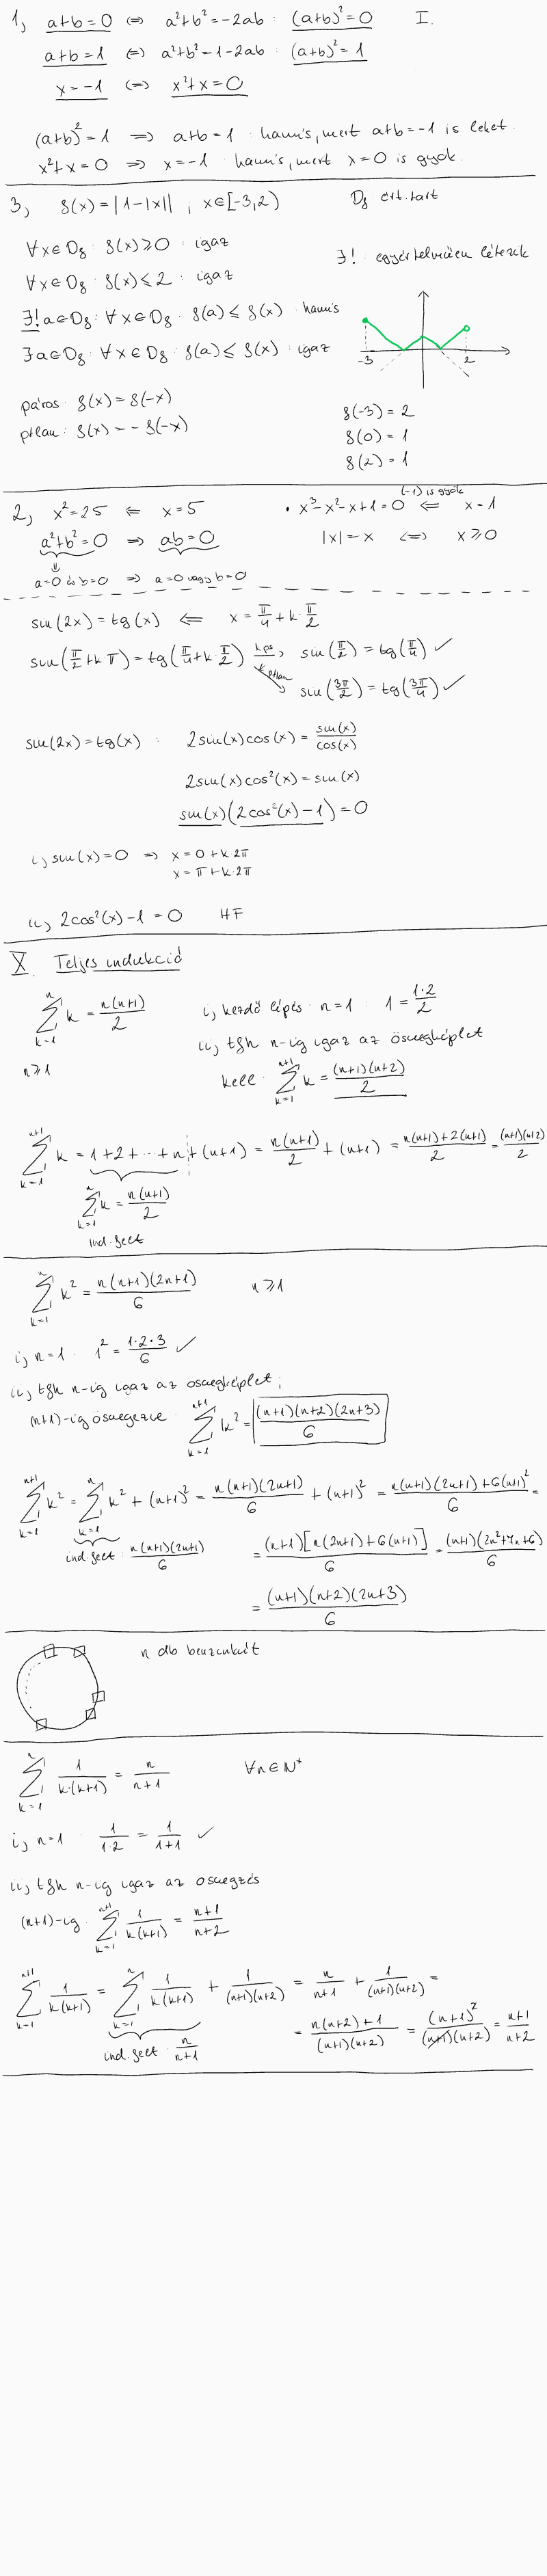 1, a+b=0 ⇔ a²+b²=-2ab : (a+b)²=0 I.
a+b=1 ⇔ a²+b²=1-2ab : (a+b)²=1
x=-1 ⇔ x²+x=0
(a+b)²=1 ⇒ a+b=1 : hamis, mert a+b=-1 is lehet.
x²+x=0 ⇒ x=-1 : hamis, mert x=0 is gyök.
3, f(x)=|1-|x|| ; x∈[-3,2) Df ért.tart
∀x∈Df : f(x)≥0 : igaz
∃! : egyértelműen létezik
∀x∈Df : f(x)≤2 : igaz
∃!a∈Df : ∀x∈Df : f(a)≤f(x) : hamis
∃a∈Df : ∀x∈Df : f(a)≤f(x) : igaz
-3 2
páros : f(x)=f(-x)
ptlan : f(x)=-f(-x)
f(-3)=2
f(0)=1
f(2)=1
2, x²=25 ⇐ x=5
a²+b²=0 ⇒ ab=0
⇓
a=0 és b=0 ⇒ a=0 vagy b=0
(-1) is gyök
• x³-x²-x+1=0 ⇐ x=1
|x|=x ⇔ x≥0
sin(2x)=tg(x) ⇐ x=π/4+k·π/2
sin(π/2+k·π)=tg(π/4+k·π/2) k ps → sin(π/2)=tg(π/4) ✓
k ptlan → sin(3π/2)=tg(3π/4) ✓
sin(2x)=tg(x) : 2sin(x)cos(x)=sin(x)/cos(x)
2sin(x)cos²(x)=sin(x)
sin(x)(2cos²(x)-1)=0
i, sin(x)=0 ⇒ x=0+k·2π
x=π+k·2π
ii, 2cos²(x)-1=0 HF
X. Teljes indukció
∑_{k=1}^{n} k = n(n+1)/2
n≥1
i, kezdő lépés : n=1 : 1=1·2/2
ii, tfh n-ig igaz az összegképlet
kell : ∑_{k=1}^{n+1} k = (n+1)(n+2)/2
∑_{k=1}^{n+1} k = 1+2+…+n+(n+1) = n(n+1)/2 + (n+1) = n(n+1)+2(n+1)/2 = (n+1)(n+2)/2
∑_{k=1}^{n} k = n(n+1)/2
ind.felt
∑_{k=1}^{n} k² = n(n+1)(2n+1)/6 n≥1
i, n=1 : 1²=1·2·3/6 ✓
ii, tfh n-ig igaz az összegképlet;
(n+1)-ig összegezve : ∑_{k=1}^{n+1} k² = (n+1)(n+2)(2n+3)/6
∑_{k=1}^{n+1} k² = ∑_{k=1}^{n} k² + (n+1)² = n(n+1)(2n+1)/6 + (n+1)² = n(n+1)(2n+1)+6(n+1)²/6 =
ind.felt : n(n+1)(2n+1)/6
= (n+1)[n(2n+1)+6(n+1)]/6 = (n+1)(2n²+7n+6)/6
= (n+1)(n+2)(2n+3)/6
n db benzinkút
∑_{k=1}^{n} 1/k·(k+1) = n/n+1 ∀n∈N⁺
i, n=1 : 1/1·2 = 1/1+1 ✓
ii, tfh n-ig igaz az összegzés
(n+1)-ig : ∑_{k=1}^{n+1} 1/k(k+1) = n+1/n+2
∑_{k=1}^{n+1} 1/k(k+1) = ∑_{k=1}^{n} 1/k(k+1) + 1/(n+1)(n+2) = n/n+1 + 1/(n+1)(n+2) =
ind.felt : n/n+1
= n(n+2)+1/(n+1)(n+2) = (n+1)²/(n+1)(n+2) = n+1/n+2